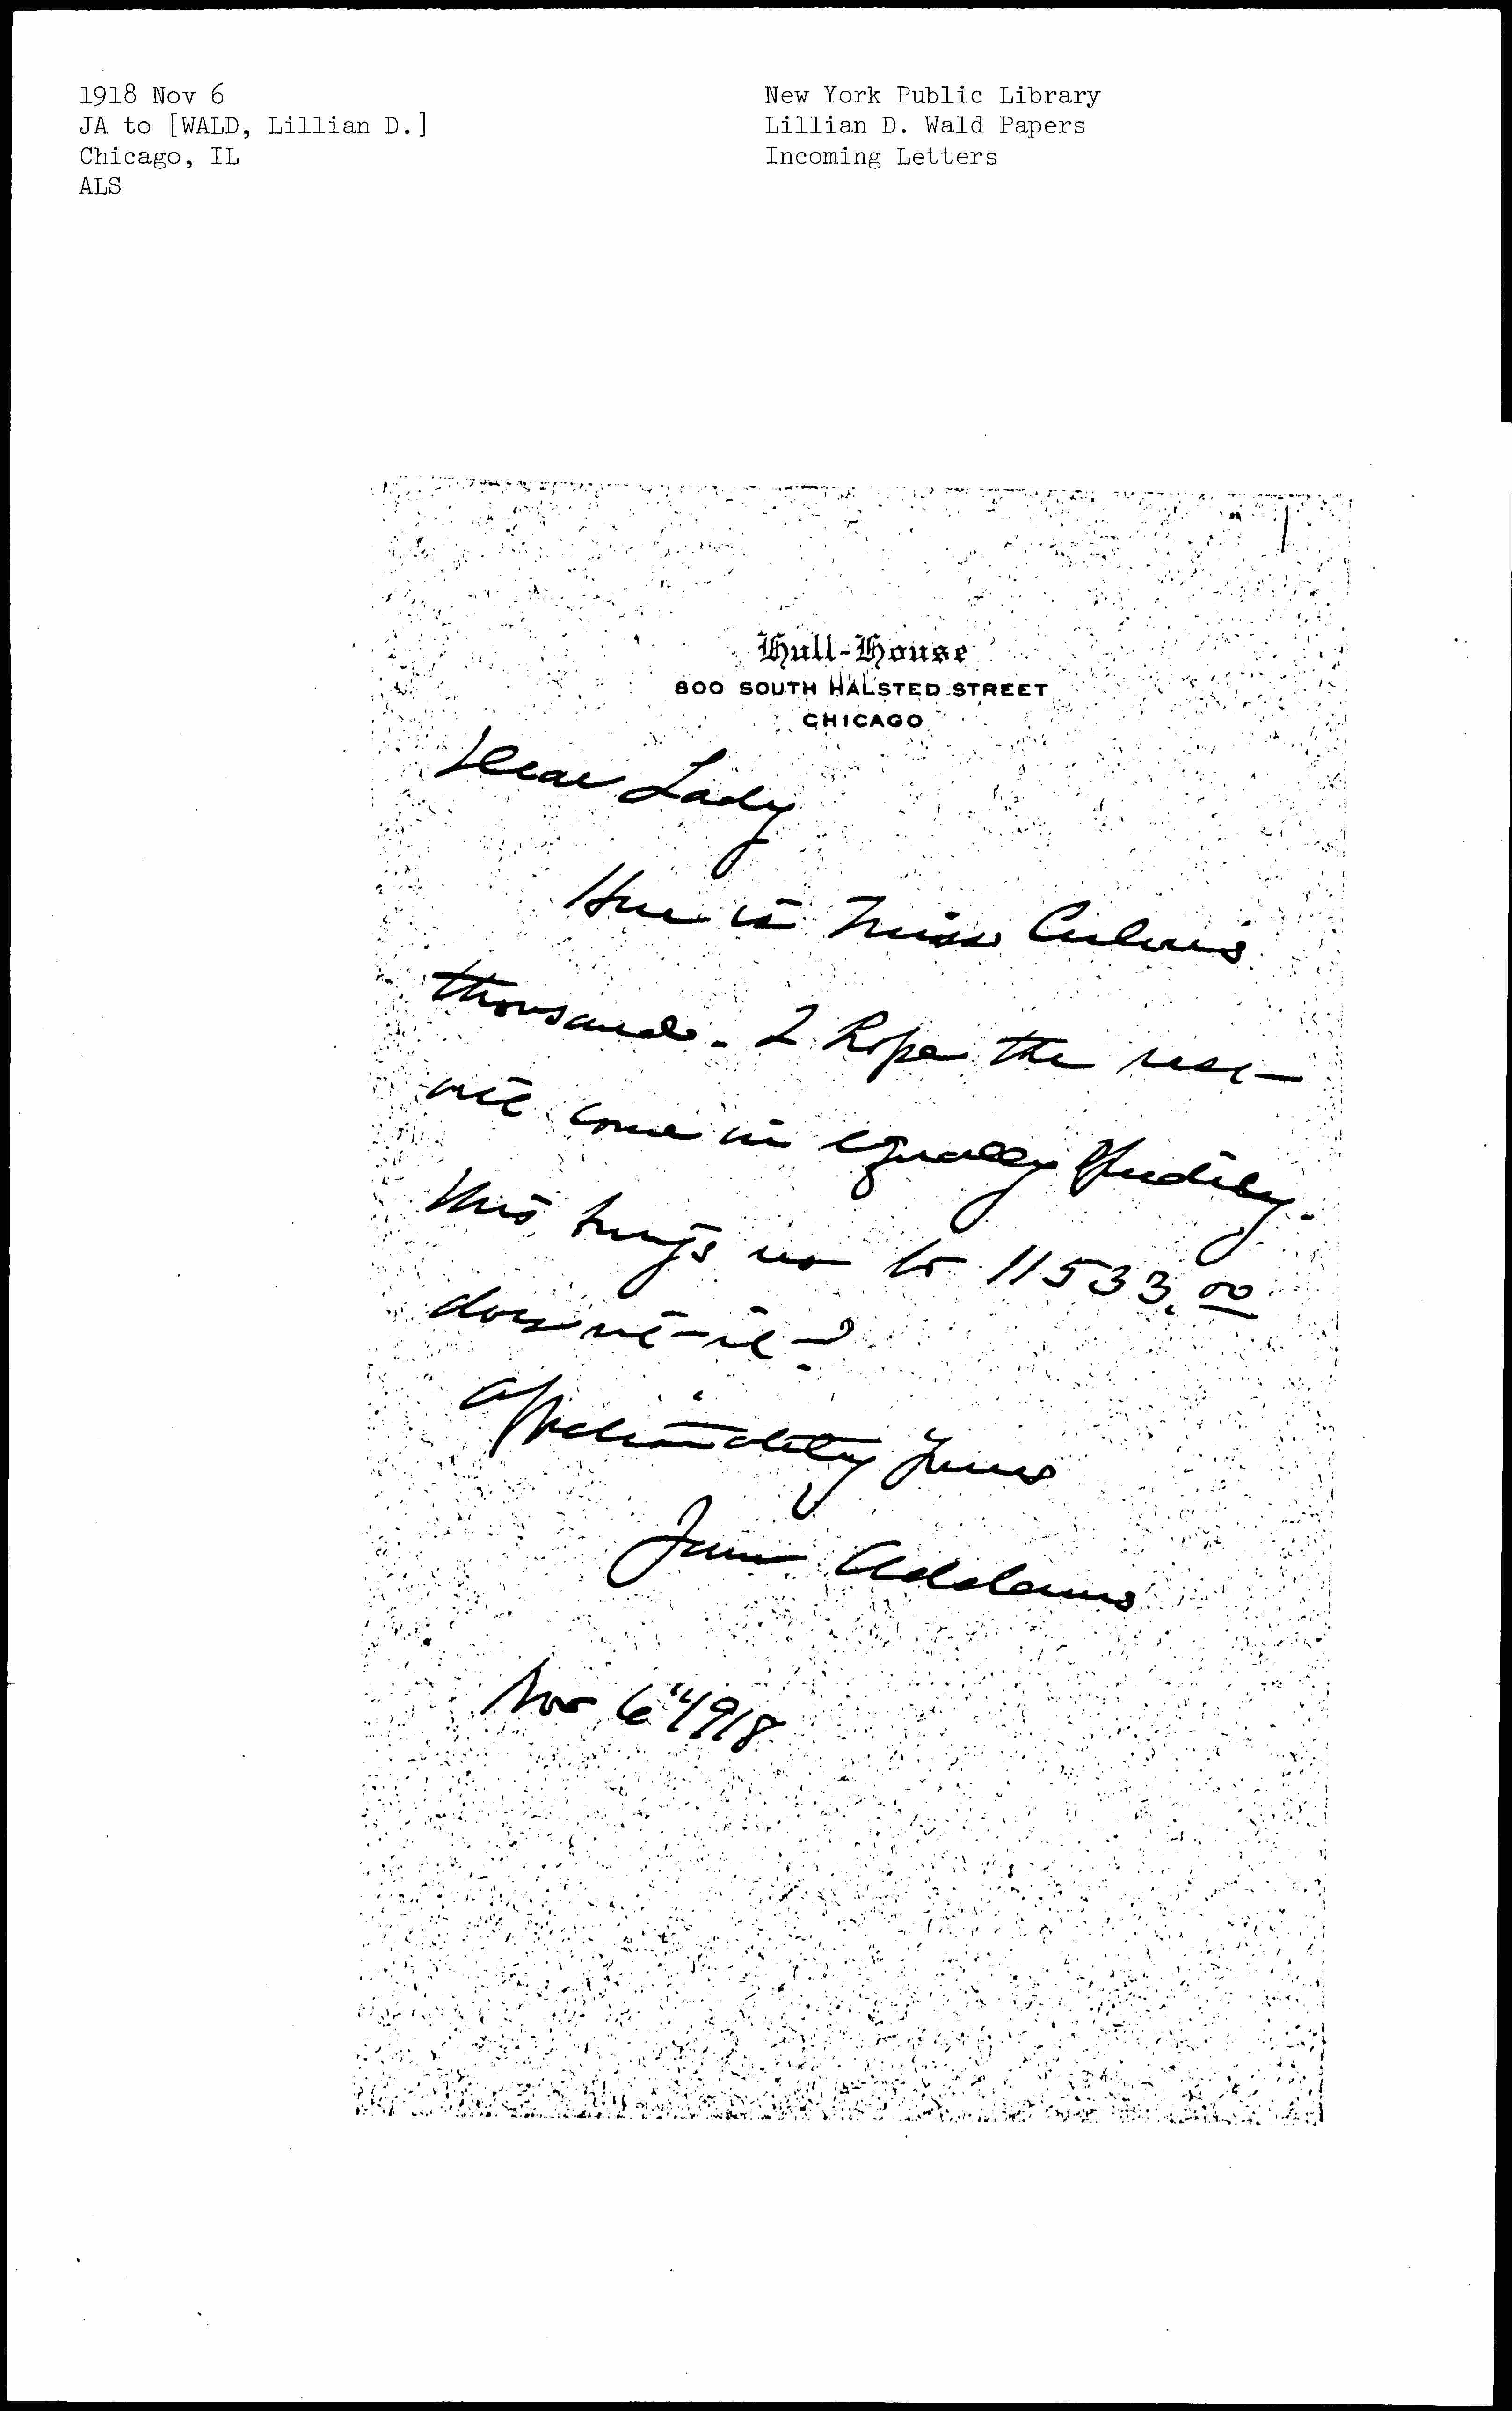 1918 Nov 6
JA to [WALD, Lillian D.]
Chicago, IL
ALS
New York Public Library
Lillian D. Wald Papers
Incoming Letters
Hull-House
800 SOUTH HALSTED STREET
CHICAGO
Dear Lady
Here is Miss Culver's
thousand. I hope the rest
will come in equally speedily.
This brings us to 11533.00
does it it?
Affectionately yours
Jane Addams
Nov 6" 1918